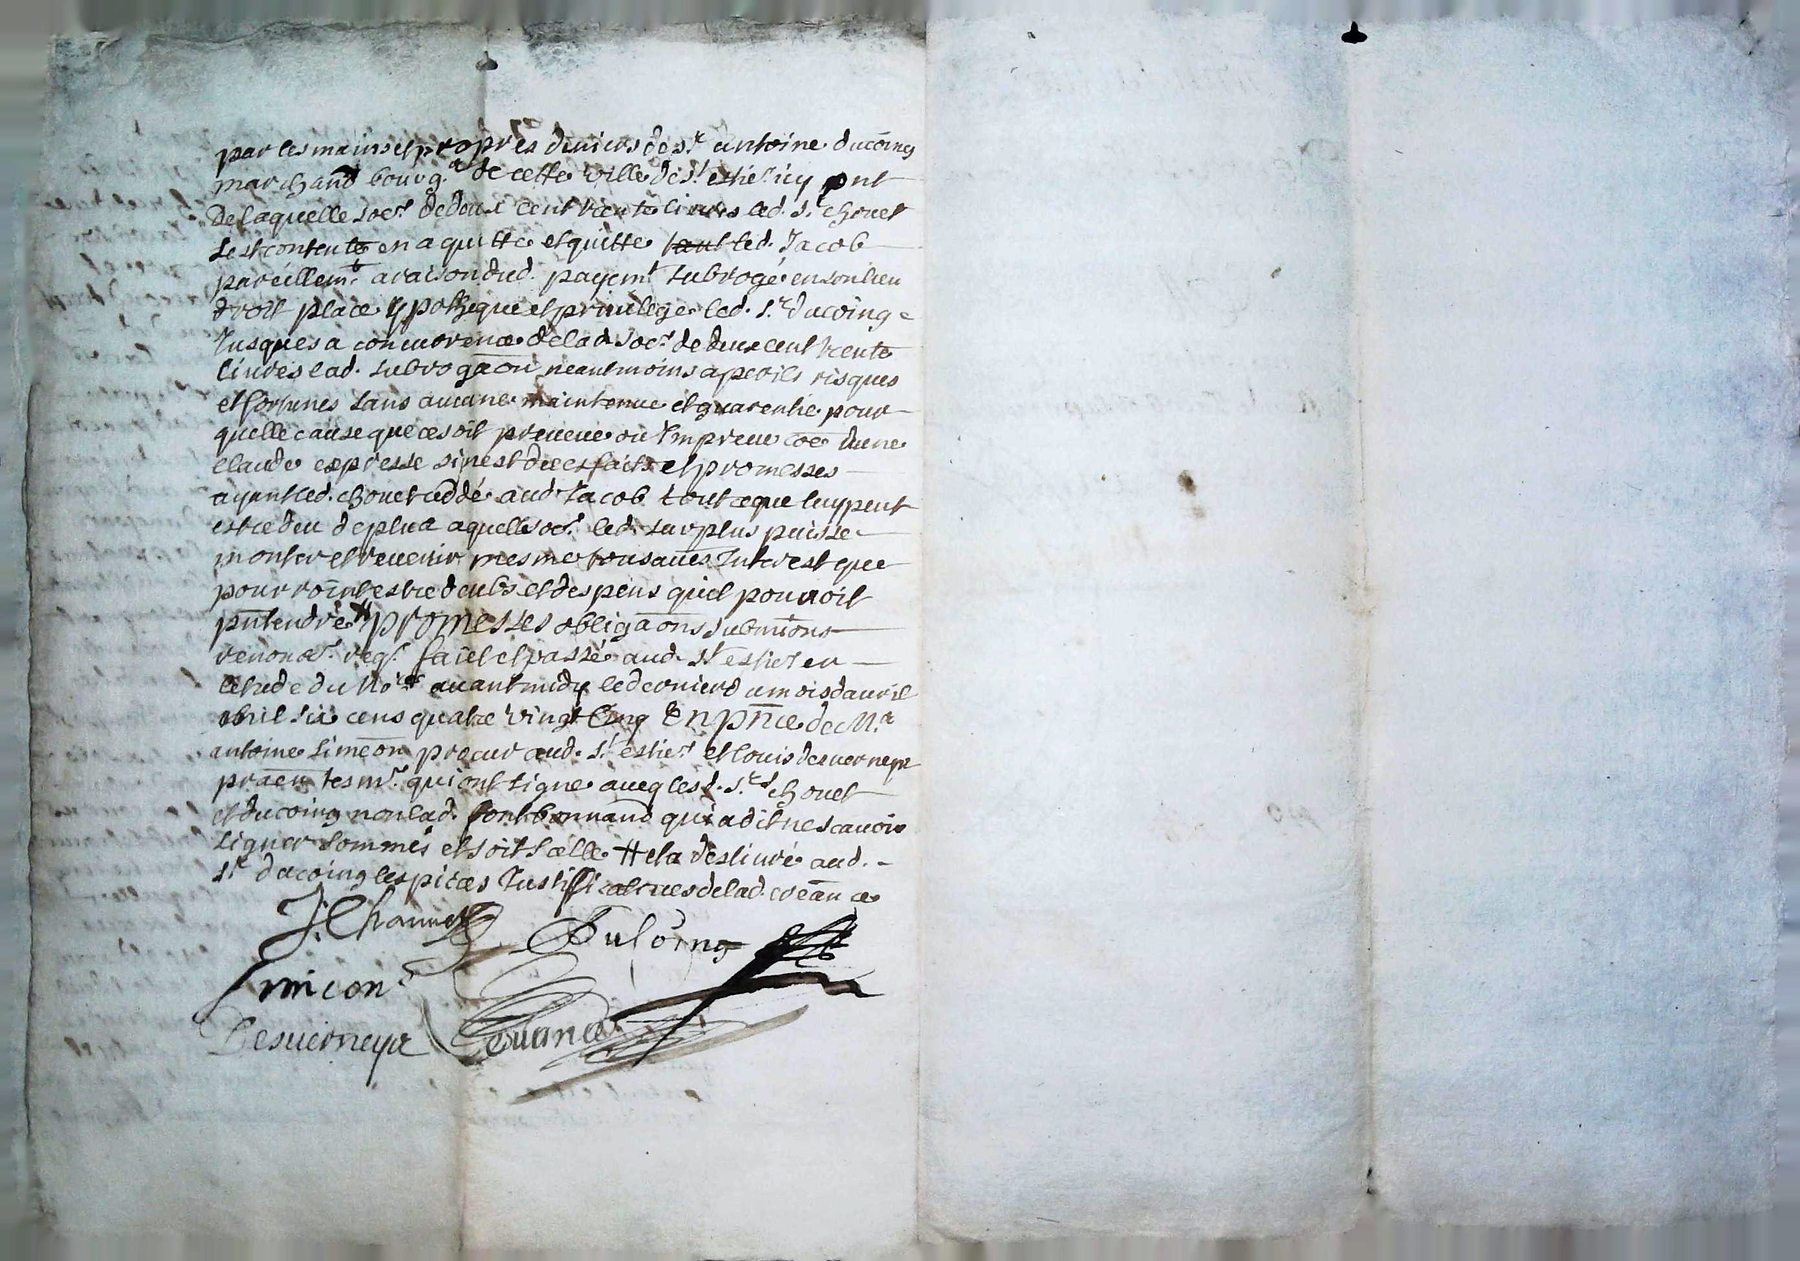 par les mains et propres deniers de sr antoine ducoing
marchand bourg.s de cette ville de st estie.e icy pnt
De laquelle soe.e de deux cent trente livres led. sr chouet
sest contenté en a quitté et quitte led. Jacob
pareillemt a raison dud. payemt subrogé en son lieu
droit place ypotheque et privilege led. sr ducoing
Jusques a concurrence de lad. soe.e de deux cent trente
livres lad. subrogaon neantmoins a perils risques
et fortunes sans aucune maintenue et guarentie pour
quelle cause que ce soit preveue ou Impreveue coe dune
claude expresse si nest de ses faits et promesses
ayant led. chouet ceddé aud. Jacob tout ce que luy peut
estre deu de plus a quelle soe.e led. surplus puisse
monter et revenir mesme tous aues Interest que
pourroint estre deubs et despens quil pouvoit
pntendre # promesses obligaons submions
renonaons req.t fait et passé aud. st estie.e en
letude du No.re avant midy le dernier du mois davril
mil six cens quatre vingt cinq En pnce de Mr
antoine simeon procur aud. st estie.e et louis desverneys
praen tesm.s qui ont signe avecq lesd. srs chouet
et ducoing non lad. fontbonnand qui a dit ne scavoir
signer sommés et soit scellé # et a deslivré aud.
sr ducoing les pieces Justifficatives de lad. creance
J. Chouuet
Ducoing
Simeon
Desverneys